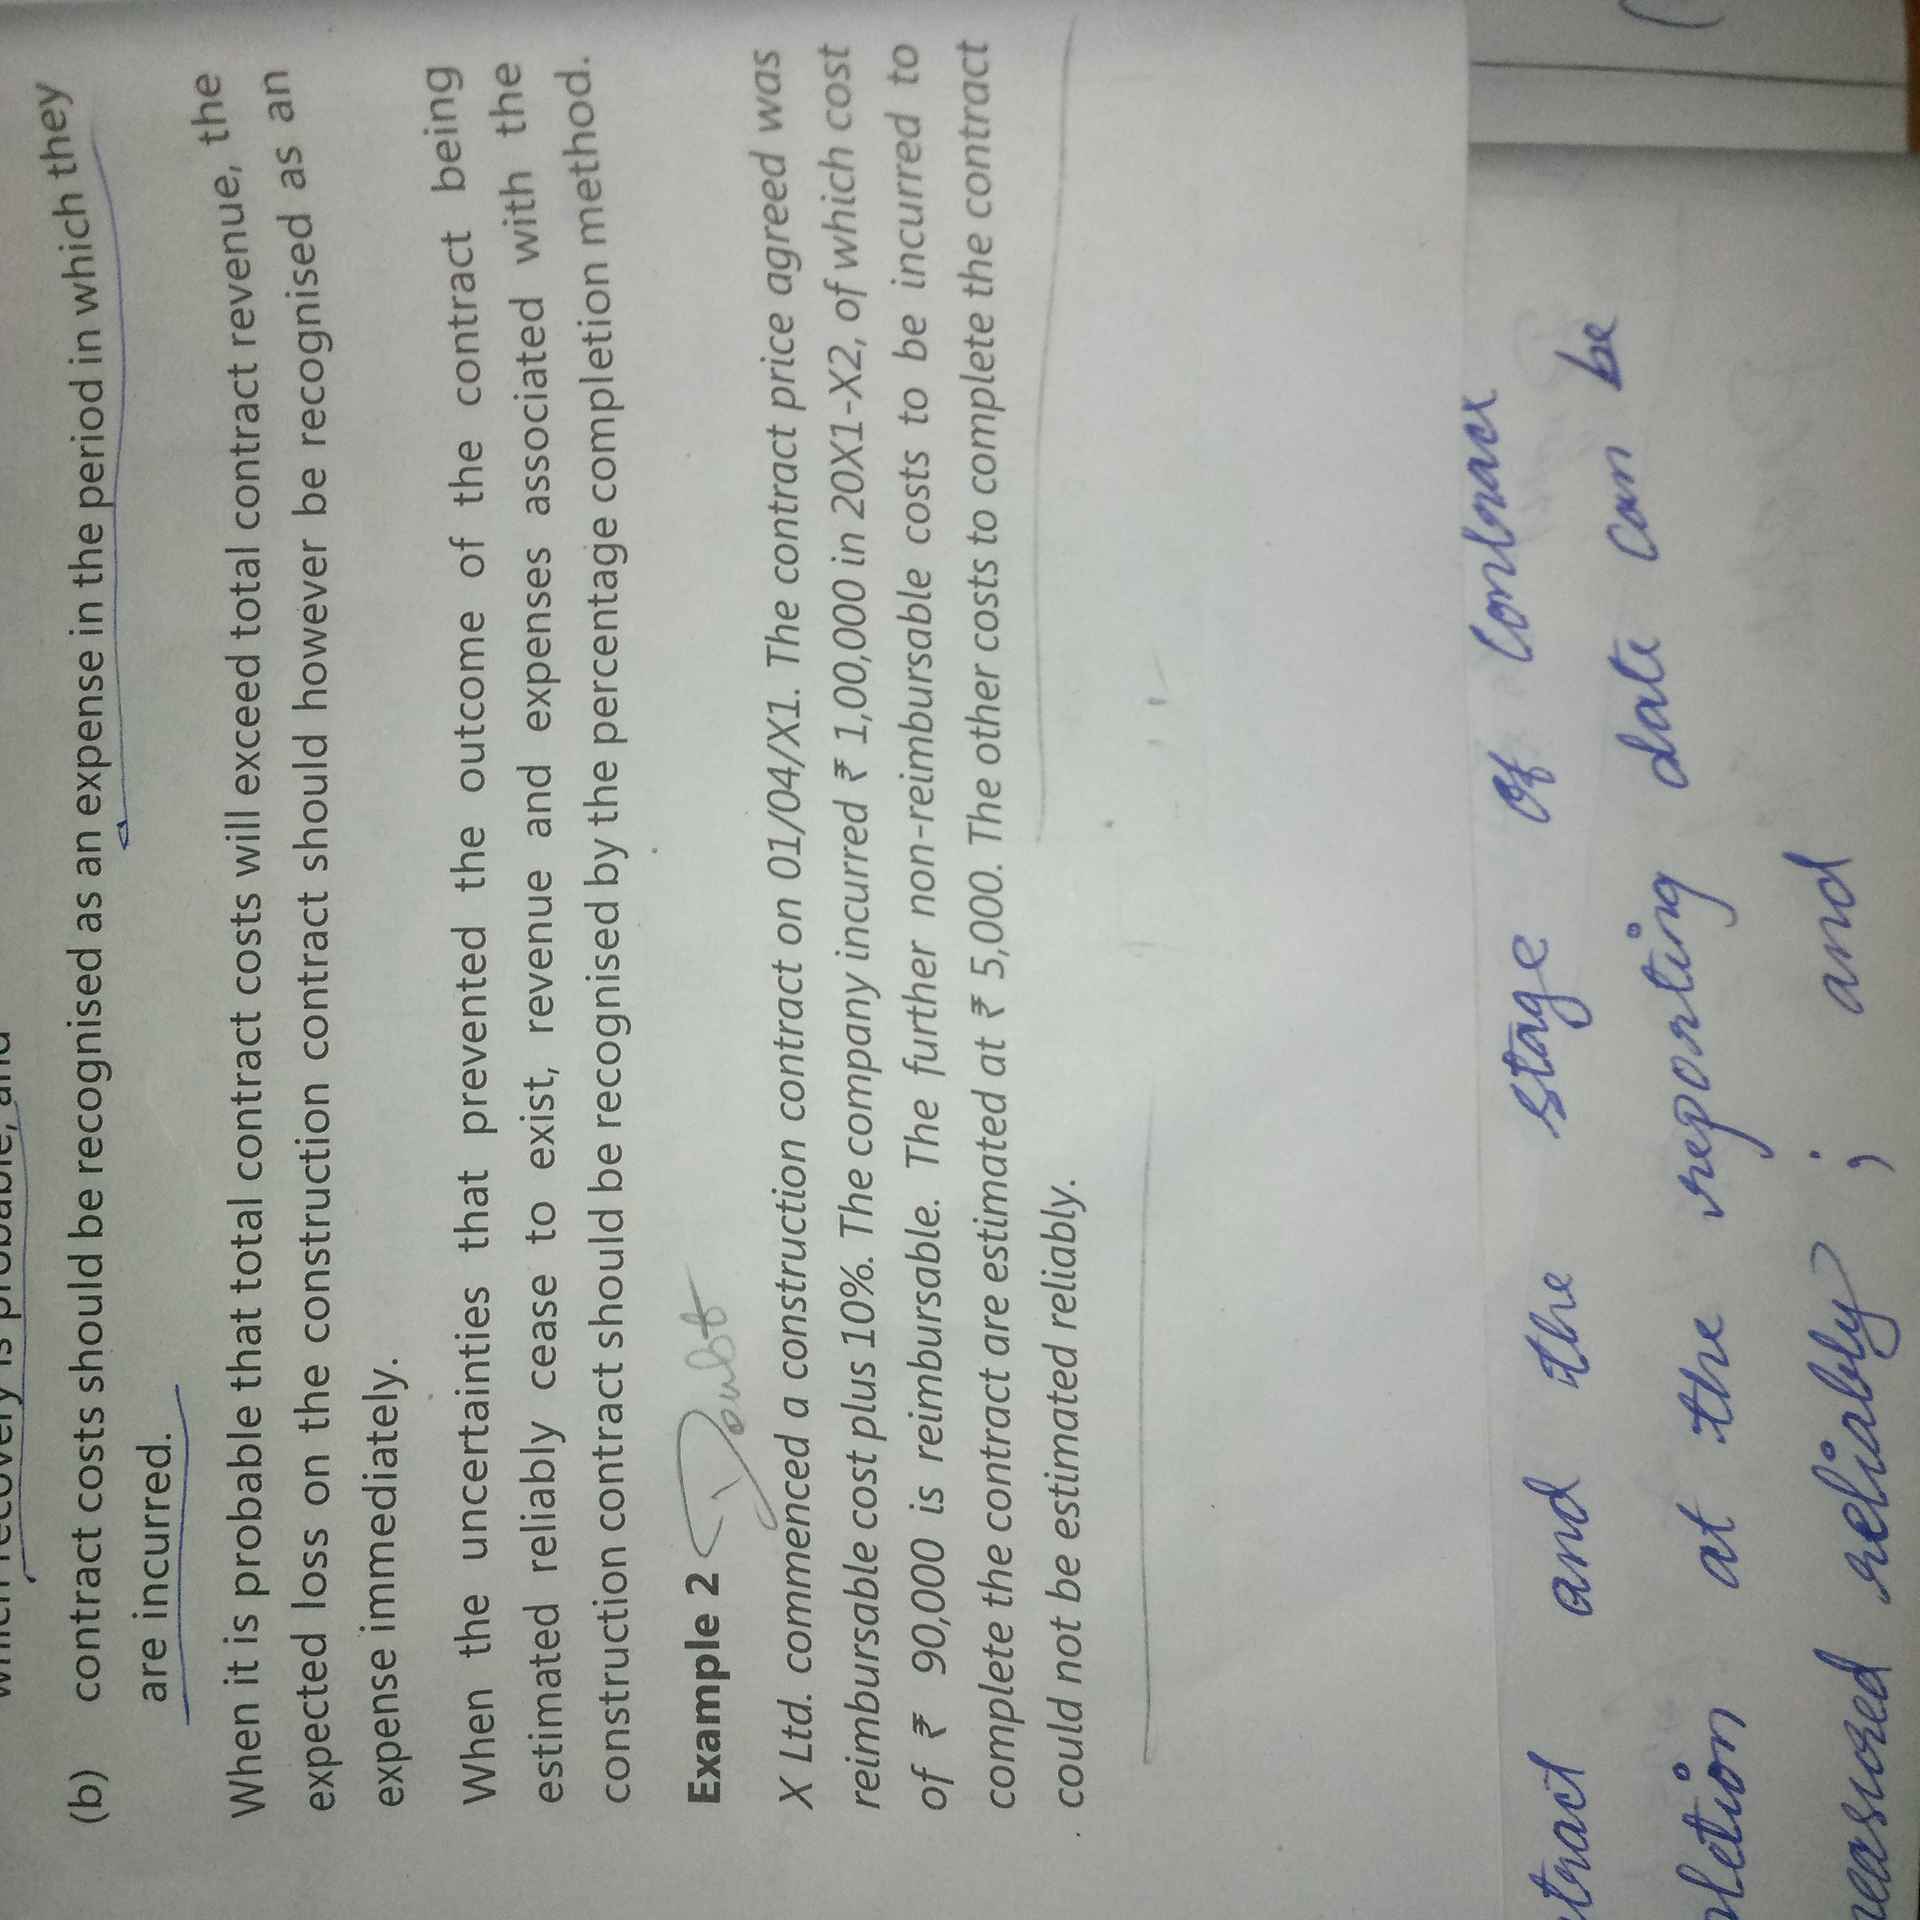 (b) contract costs should be recognised as an expense in the period in which they
are incurred.
When it is probable that total contract costs will exceed total contract revenue, the
expected loss on the construction contract should however be recognised as an
expense immediately.
When the uncertainties that prevented the outcome of the contract being
estimated reliably cease to exist, revenue and expenses associated with the
construction contract should be recognised by the percentage completion method.
Example 2 Doubt
X Ltd. commenced a construction contract on 01/04/X1. The contract price agreed was
reimbursable cost plus 10%. The company incurred ₹ 1,00,000 in 20X1-X2, of which cost
of ₹ 90,000 is reimbursable. The further non-reimbursable costs to be incurred to
complete the contract are estimated at ₹ 5,000. The other costs to complete the contract
could not be estimated reliably.
and the stage of contract
at the reporting date can be
reliably ; and